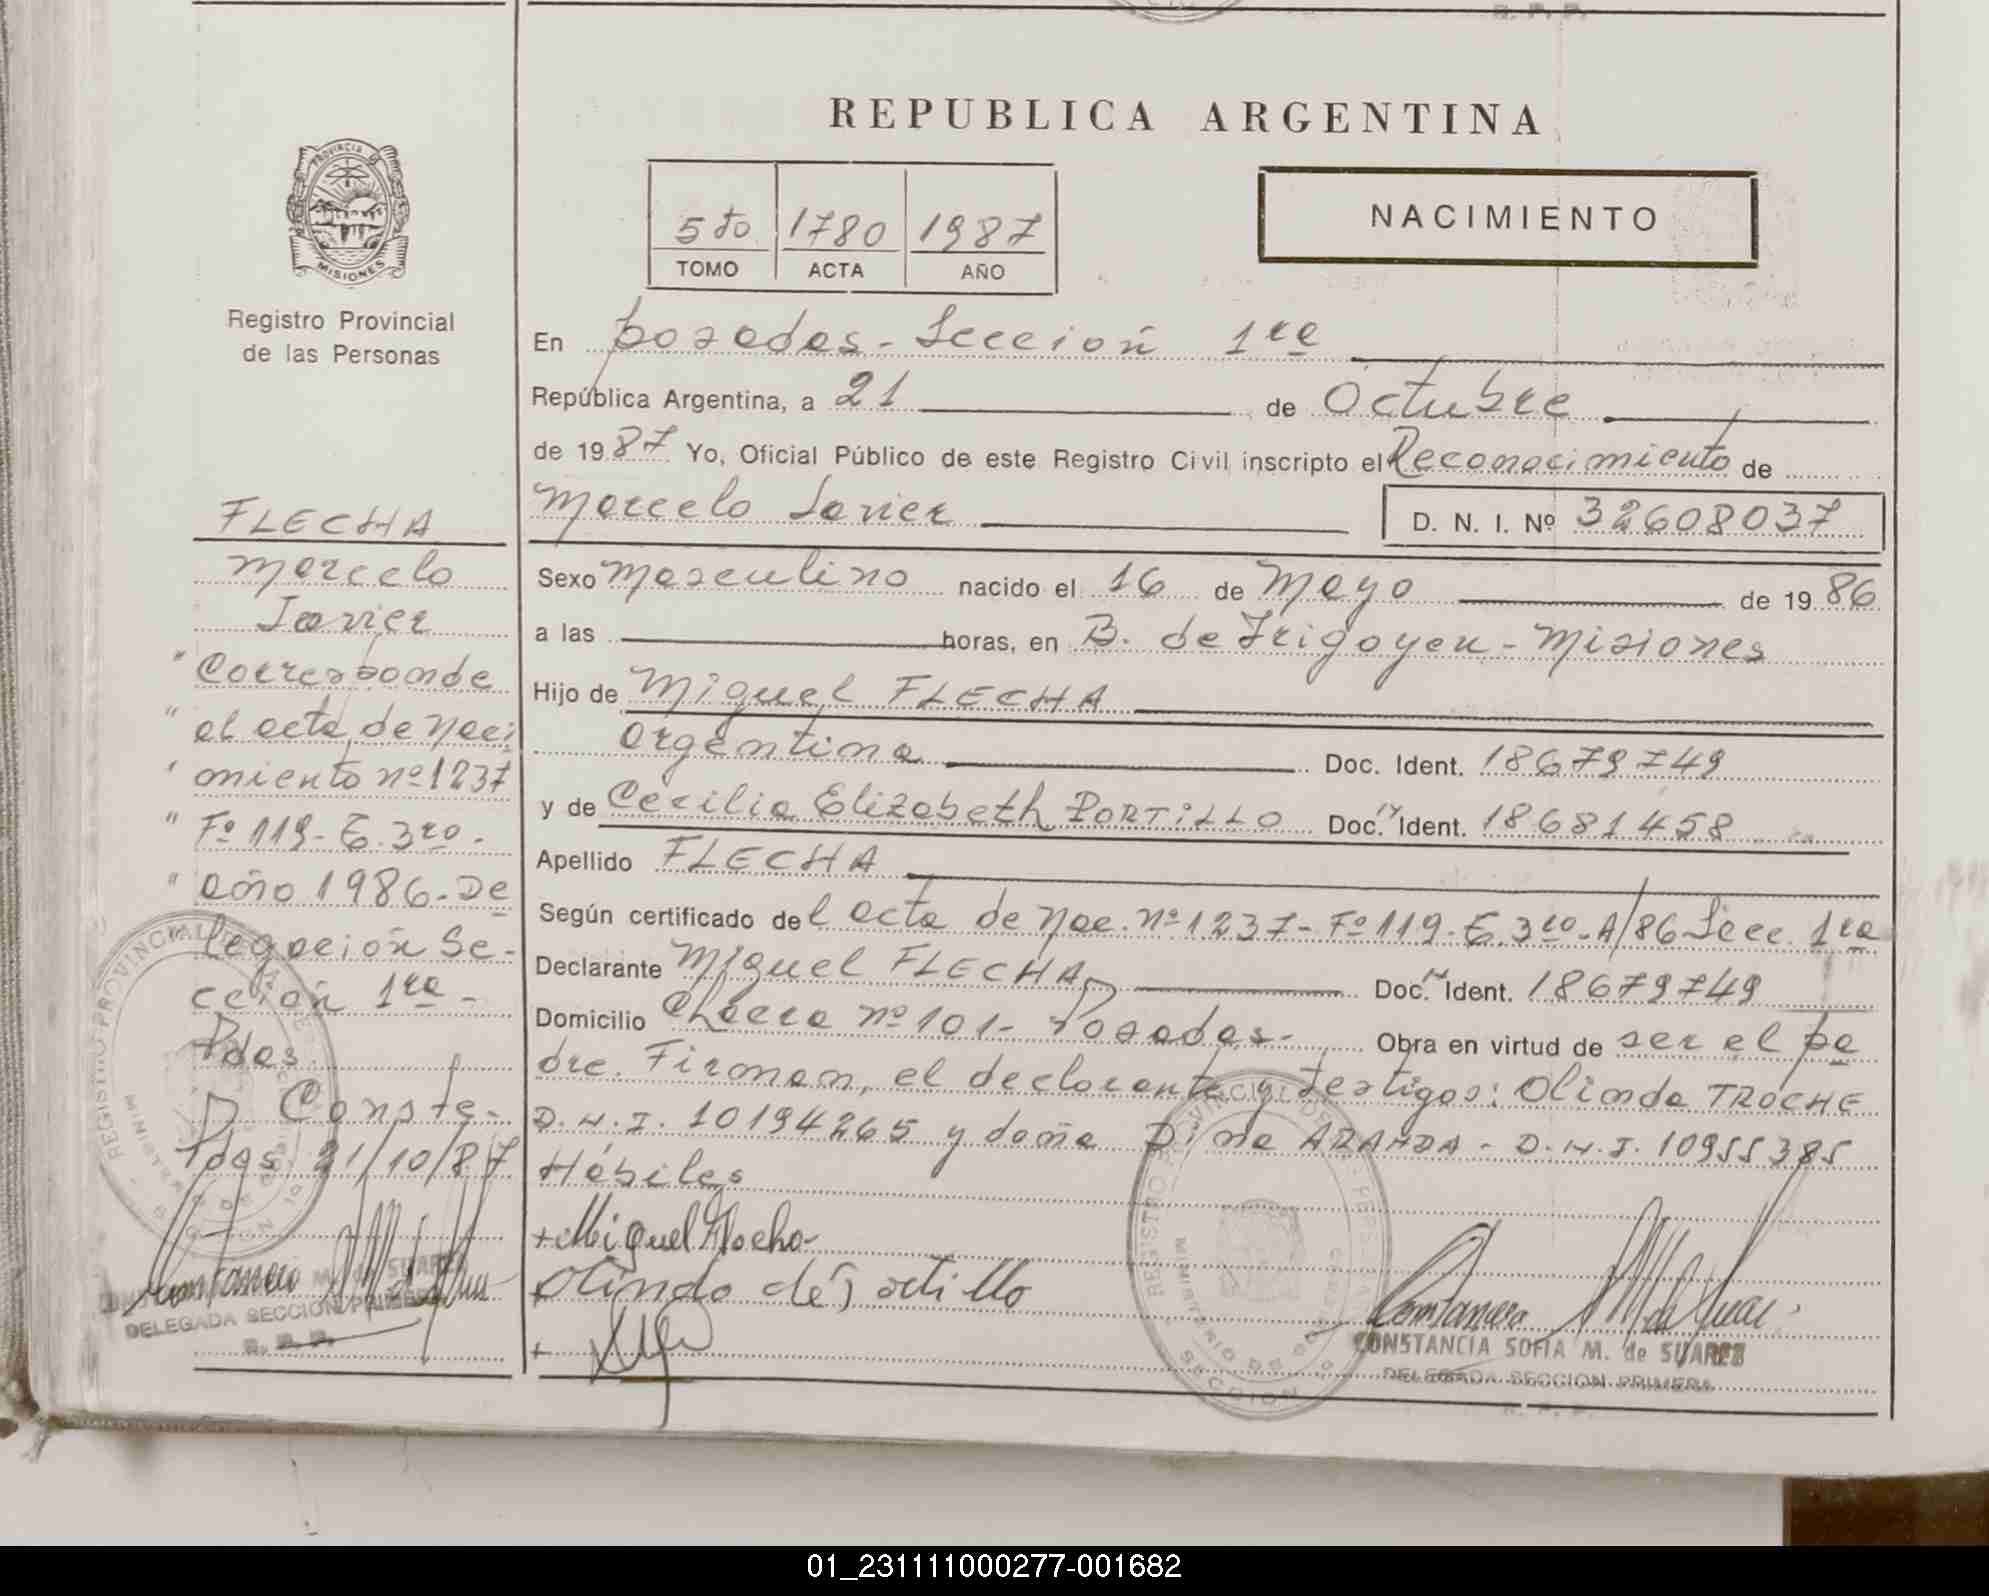 REPUBLICA ARGENTINA
PROVINCIA DE
MISIONES
Registro Provincial
de las Personas
5to 1780 1987
TOMO ACTA AÑO
NACIMIENTO
En Posadas - Sección 1ra
República Argentina, a 21 de Octubre
de 1987 Yo, Oficial Público de este Registro Civil inscripto el Reconocimiento de
Marcelo Javier D. N. I. Nº 32608037
Sexo Masculino nacido el 16 de Mayo de 1986
a las horas, en B. de Irigoyen - Misiones
Hijo de Miguel FLECHA
Argentina Doc. Ident. 18679749
y de Cecilia Elizabeth PORTILLO Doc. Ident. 18681458
Apellido FLECHA
Según certificado del acta de Nac. Nº 1237 - Fº 119 - T. 3ro - A/86 Secc. 1ra
Declarante Miguel FLECHA Doc. Ident. 18679749
Domicilio Chacra nº 101 - Posadas - Obra en virtud de ser el pa
dre. Firman, el declarante y testigos: Olinda TROCHE
D.N.I. 10194265 y doña Dina ARANDA - D.N.I. 10955385
Hábiles
+ Miguel Flecha
+ Olinda de Portillo
+
CONSTANCIA SOFIA M. de SUAREZ
DELEGADA SECCION PRIMERA
R. P. P.
FLECHA
Marcelo
Javier
" Corresponde
" al acta de Naci
" miento nº 1237
" Fº 119 - T. 3ro -
" año 1986 - De
legación Se-
cción 1ra -
Pdas.
Conste -
Pdas. 21/10/87
M. de SUAREZ
DELEGADA SECCION PRIMERA
R. P. P.
01_231111000277-001682